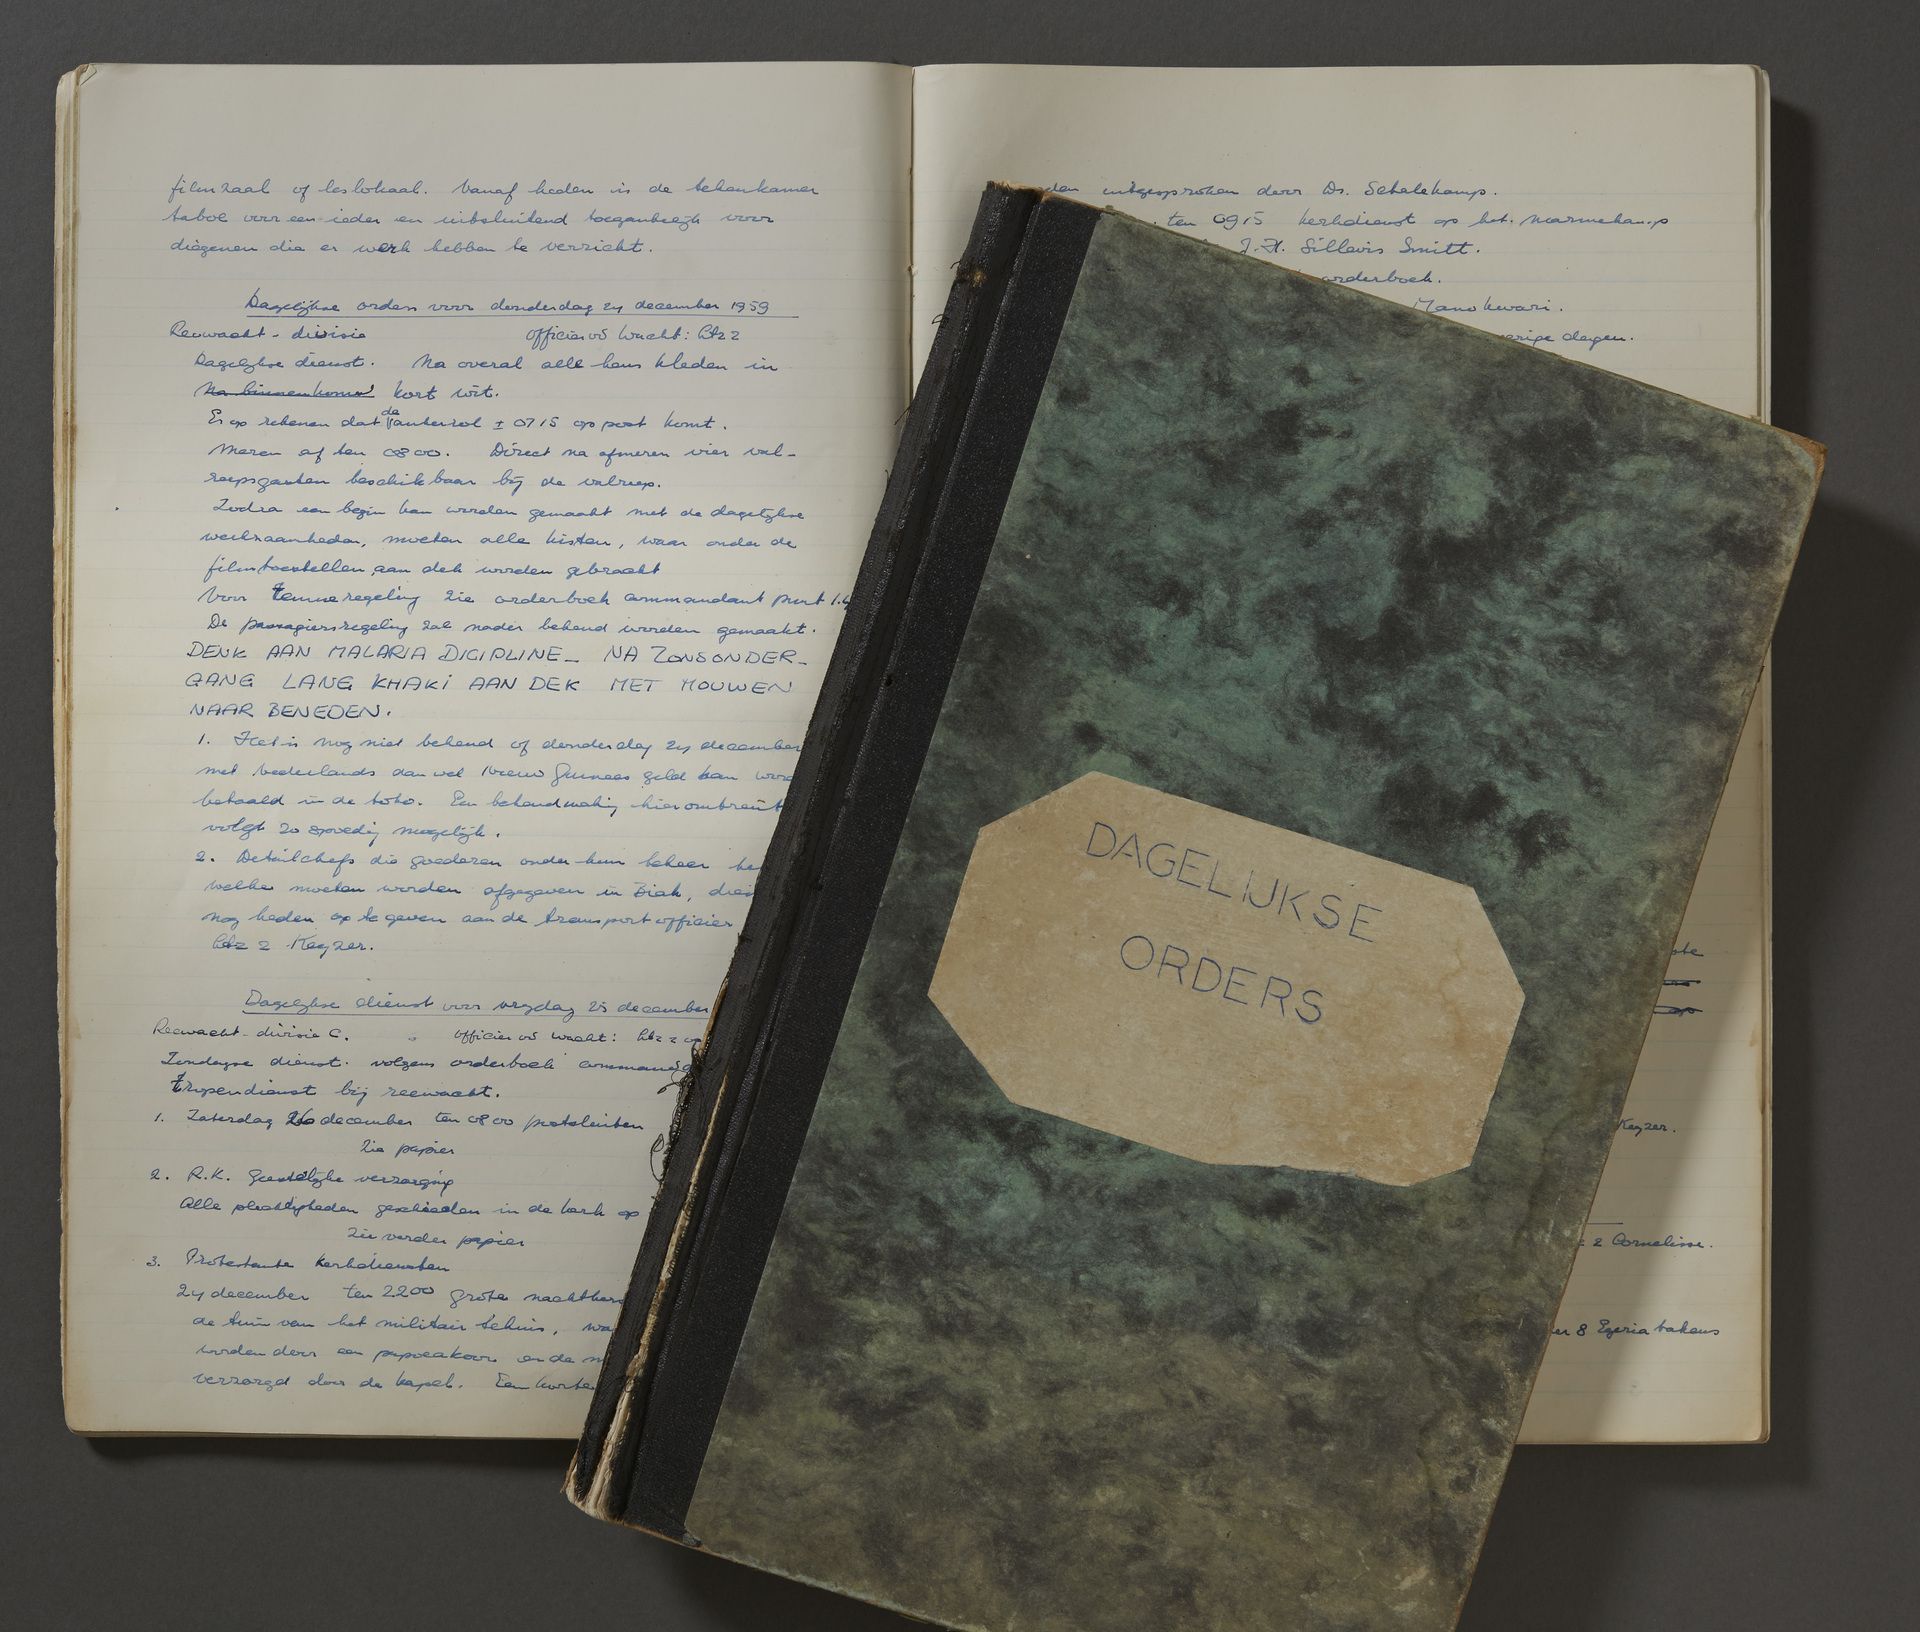 filmzaal of leslokaal. Vanaf heden is de tekenkamer
taboe voor een ieder en uitsluitend toegankelijk voor
diegenen die er werk hebben te verricht.
Dagelijkse orders voor donderdag 24 december 1959
Reewacht - divisie officier vd wacht: ltz 2
Dagelijkse dienst. Na overal alle hens kleden in
Na binnenkomst kort wit.
Er op rekenen dat de ankerrol ± 0715 op post komt.
Meren af ten 0800. Direct na afmeren vier val-
reepsgasten beschikbaar bij de valreep.
Zodra een begin kan worden gemaakt met de dagelijkse
werkzaamheden, moeten alle kisten, waar onder de
filmtoestellen, aan dek worden gebracht
Voor tenueregeling zie orderboek commandant punt 1.
De passagiersregeling zal nader bekend worden gemaakt.
DENK AAN MALARIA DICIPLINE_ NA ZONSONDER_
GANG LANG KHAKI AAN DEK MET MOUWEN
NAAR BENEDEN.
1. Het is nog niet bekend of donderdag 24 december
met Nederlands dan wel Nieuw Guinees geld kan
betaald in de toko. Een bekendmaking hieromtrent
volgt zo spoedig mogelijk.
2. Detailchefs die goederen onder hun beheer
welke moeten worden afgegeven in Biak,
nog heden op te geven aan de transportofficier
ltz 2 Keyzer.
Dagelijkse dienst voor vrijdag 25 december
Reewacht-divisie C. officier vd wacht: ltz 2
Zondagse dienst. volgens orderboek
tropendienst bij reewacht.
1. Zaterdag 26 december ten 0800 postsluiten
zie papier
2. R.K. Geestelijke verzorging
Alle plechtigheden geschieden in de kerk op
zie verder papier
3. Protestante kerkdiensten
24 december ten 2200 grote
de tuin van het militair tehuis,
worden door een papoeakoor en de
verzorgd door de kapel. Een korte
uitgesproken door Ds. Schalekamp.
ten 0915 kerkdienst op het marinekamp
J.H. Sillevis Smitt.
orderboek.
Manokwari.
dagen.
Keyzer.
2 Cornelisse.
8 Egeria bakens
DAGELIJKSE
ORDERS